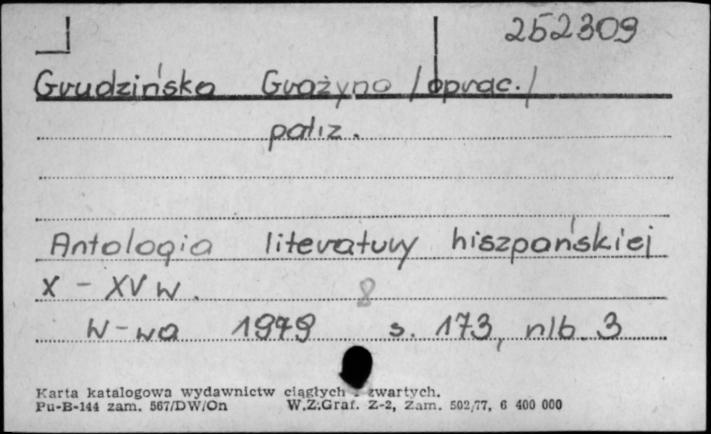 252309
Grudzińska Grażyna /oprac./
patrz.
Antologia literatury hiszpańskiej
X - XV w.
8
W-wa 1979 s. 173, nlb. 3
Karta katalogowa wydawnictw ciągłych i zwartych.
Pu-B-144 zam. 567/DW/On W.Z.Graf. Z-2, Zam. 502/77, 6 400 000